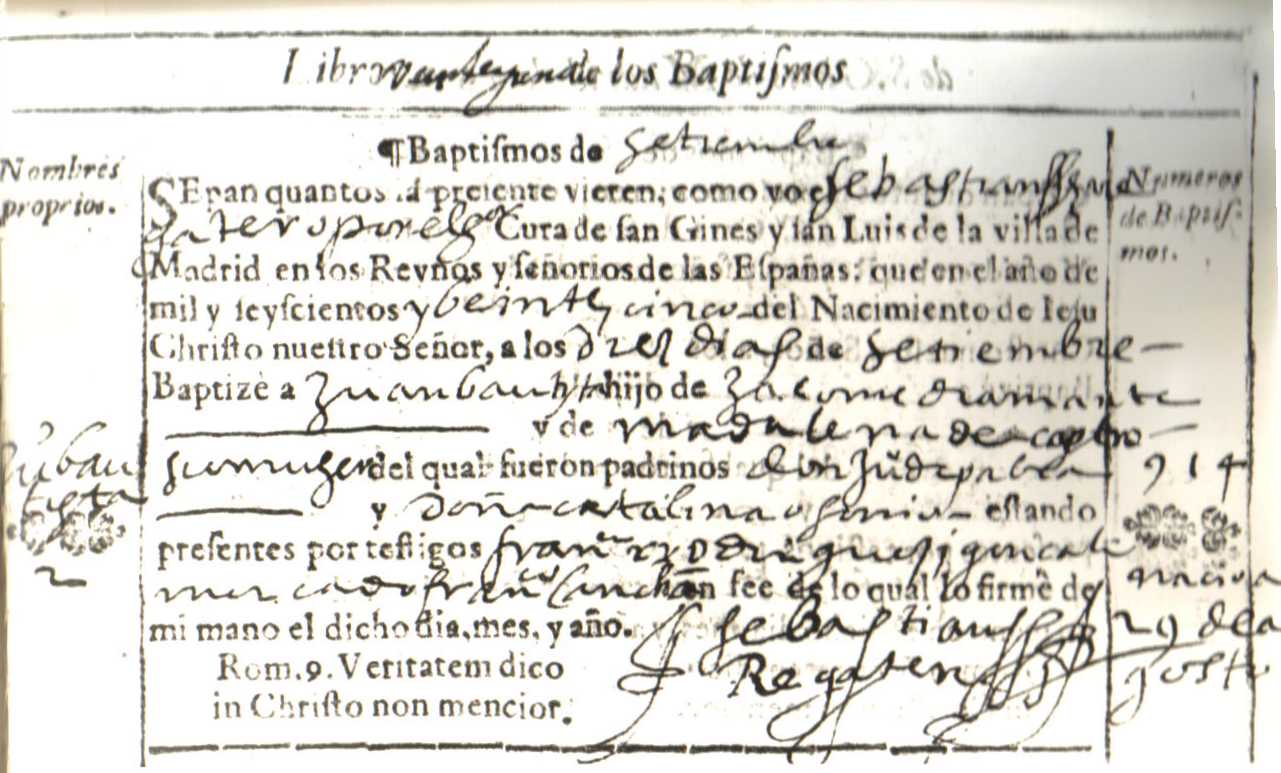 Libro de los Baptiſmos
¶Baptiſmos de Setiembre
Nombres proprios.
Numeros de Baptiſmos.
SEpan quantos la preſente vieren, como yo Sebaſtian
Cura de ſan Gines y ſan Luis de la villa de
Madrid en los Reynos y ſeñorios de las Eſpañas: que en el año de
mil y ſeyſcientos y beinte y cinco del Nacimiento de Ieſu
Chriſto nueſtro Señor, a los diez dias de Setiembre
Baptizè a Juan bautista hijo de Jacome diamante
y de madalena de castro
su muger del qual fueron padrinos don Ju° de
y doña catalina estando
preſentes por teſtigos fran^co rrodriguez
mercado fran^co sanchez en fee de lo qual lo firmè de
mi mano el dicho dia, mes, y año. Sebastian
Regatero
Rom. 9. Veritatem dico
in Chriſto non mencior.
Ju° bautista
2
914
nacio a
29 de a
gosto